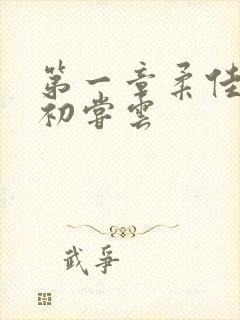 第一章柔佳
初尝雲
武爭